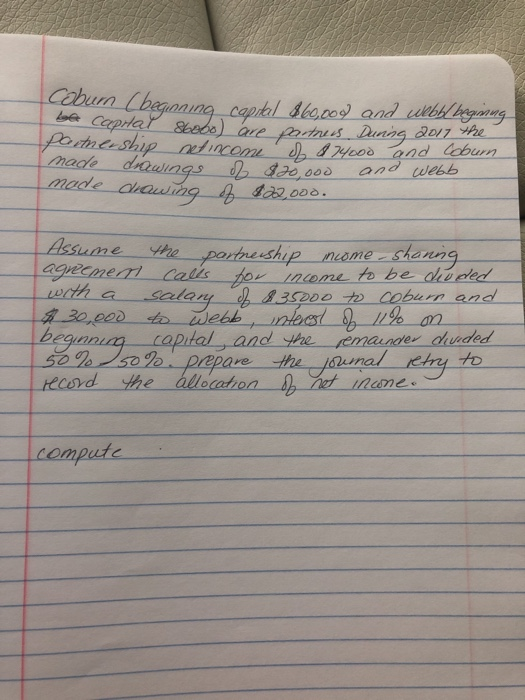 Coburn (beginning capital $60,000) and webb (beginning
be capital 86000) are partners During 2017 the
partnership netincome of $74000 and Coburn
made drawings of $20,000 and webb
made drawing of $22,000.
Assume the partnership income-sharing
agreement calls for income to be divided
with a salary of $35000 to coburn and
$30,000 to webb, interest of 11% on
beginning capital, and the remainder divided
50% 50%. prepare the journal retry to
record the allocation of net income.
compute